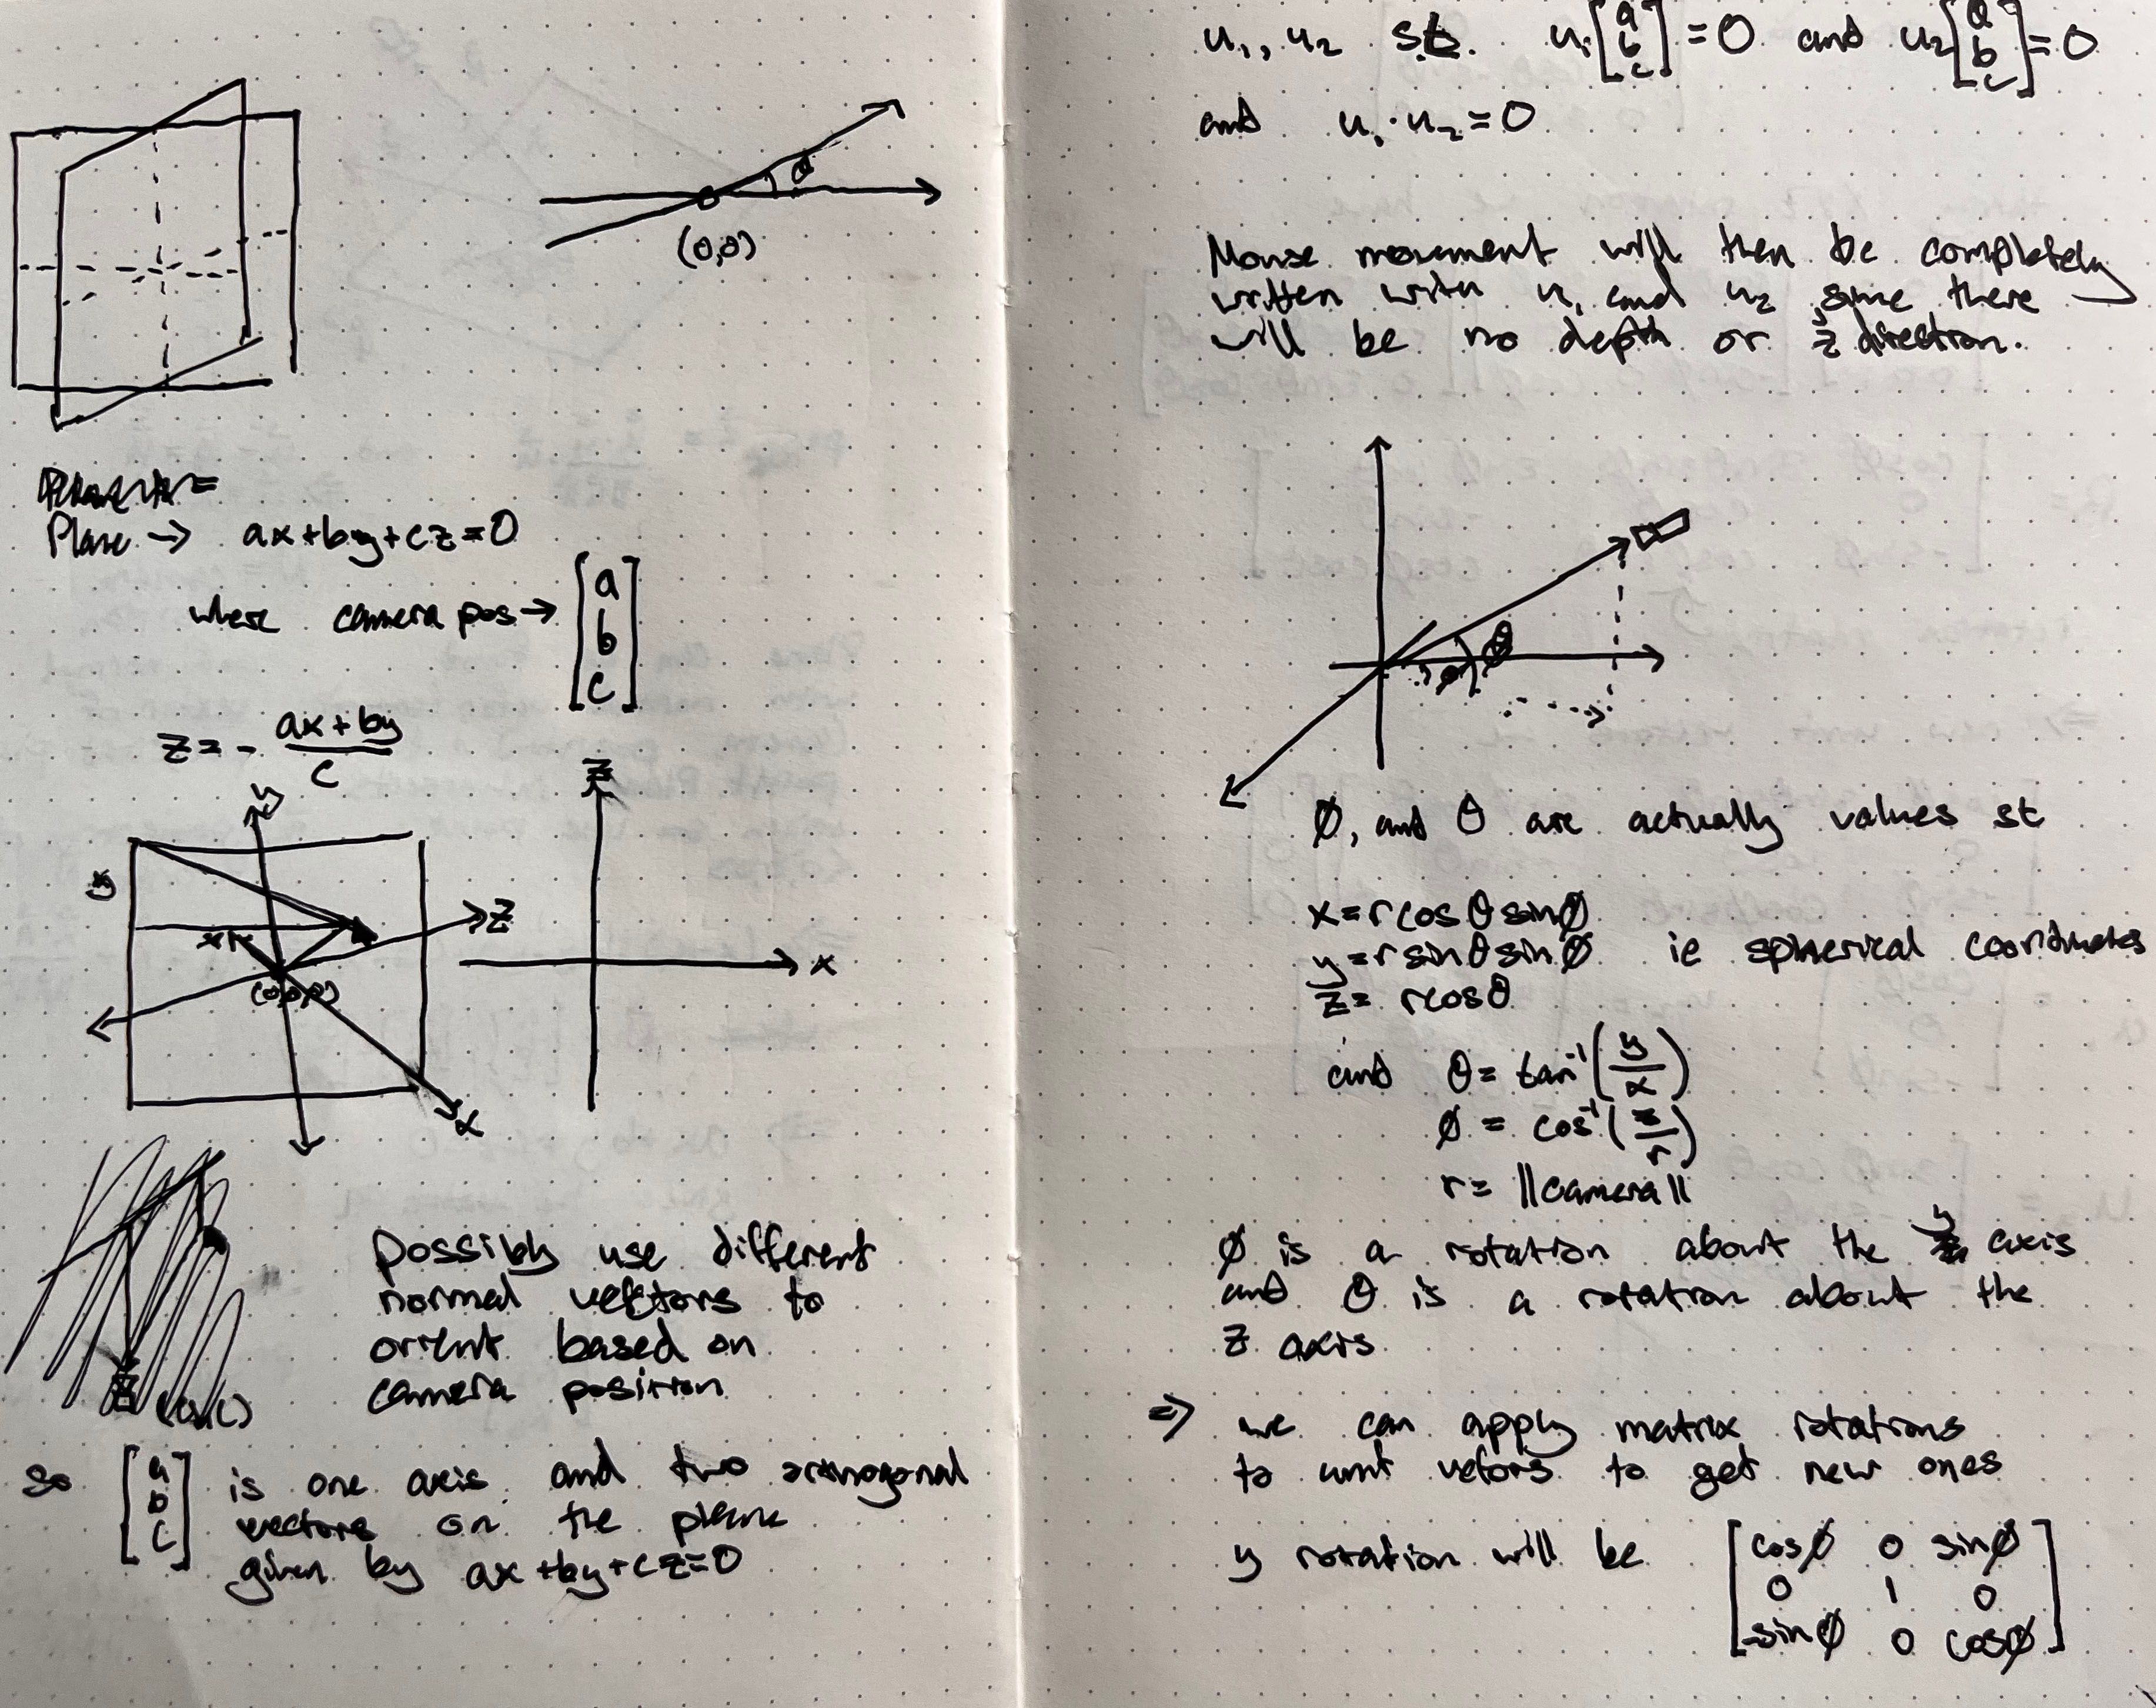 (0,0)
Plane → ax+by+cz=0
where camera pos →
[a
b
c]
z = - ax+by
c
y
z
x
y
z
x
(0,0,0)
x
possibly use different
normal vectors to
orient based on
camera position
so [a b c] is one axis and two orthogonal
vectors on the plane
given by ax+by+cz=0
u₁, u₂ st. u₁[a b c]=0 and u₂[a b c]=0
and u₁·u₂=0
Mouse movement will then be completely
written with u₁ and u₂, since there
will be no depth or z direction.
θ
ø
ø, and θ are actually values st
x=rcosθsinø
y=rsinθsinø ie spherical coordinates
z= rcosθ
and θ= tan⁻¹(y/x)
ø = cos⁻¹(z/r)
r= ||camera||
ø is a rotation about the y axis
and θ is a rotation about the
z axis.
⇒ we can apply matrix rotations
to unit vetors to get new ones
y rotation will be
[cosø 0 sinø
0 1 0
-sinø 0 cosø]